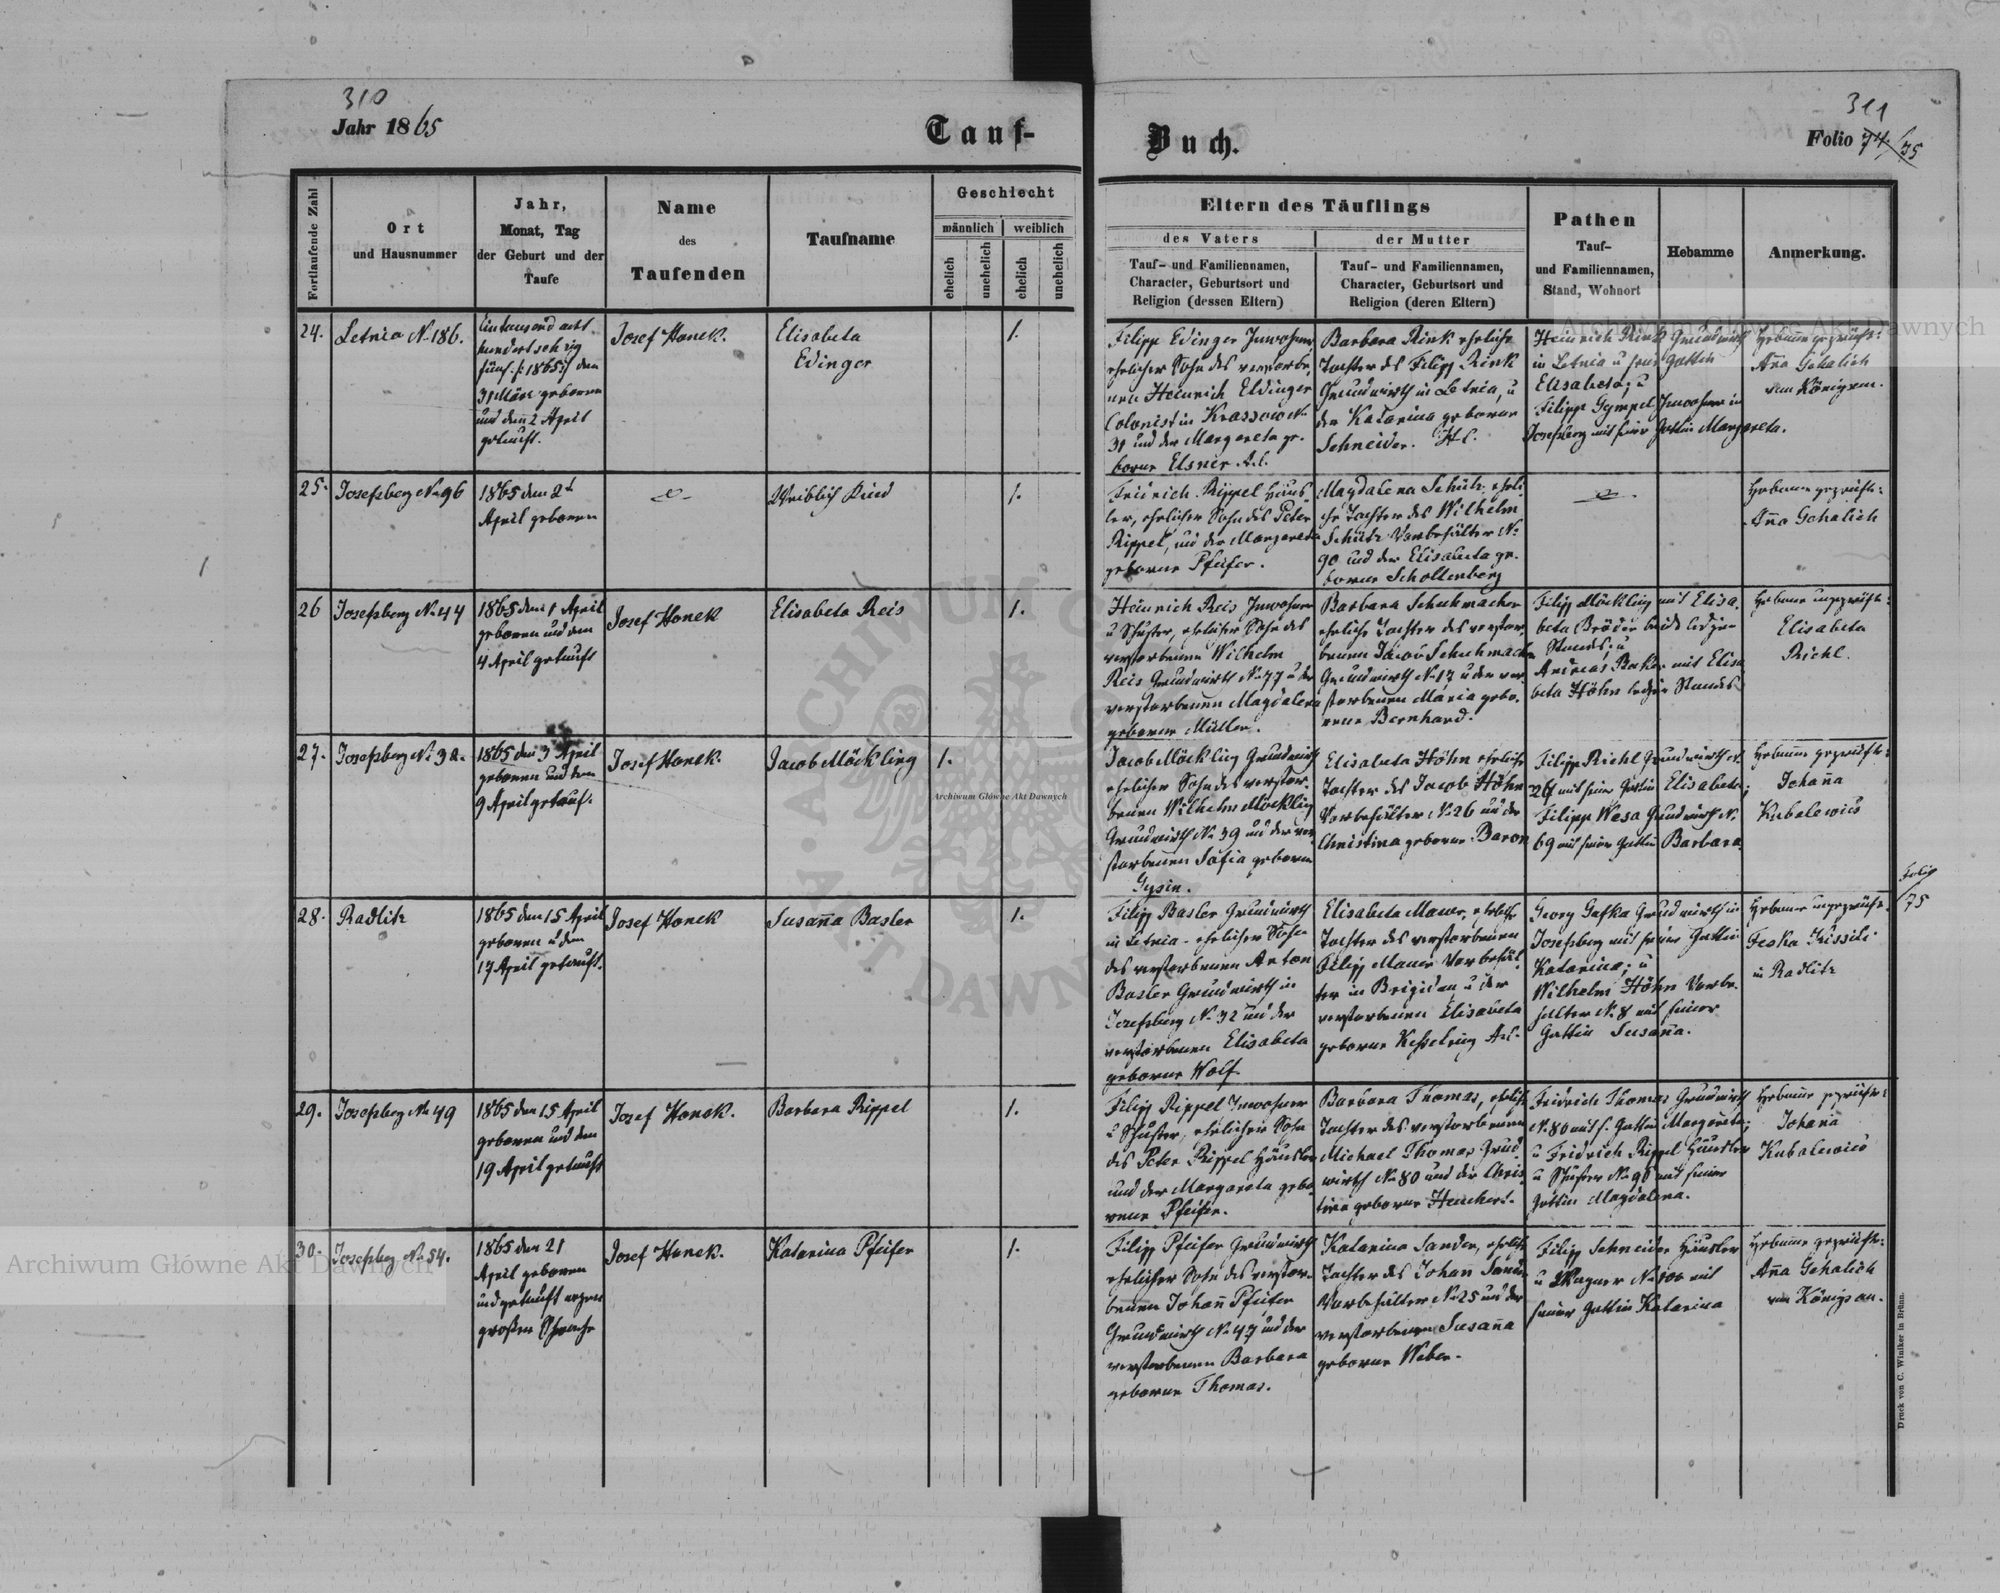 310
Jahr 1865
Tauf-
Buch.
311
Folio 74/75
Fortlaufende Zahl
Ort
und Hausnummer
Jahr,
Monat, Tag
der Geburt und der
Taufe
Name
des
Taufenden
Taufname
Geschlecht
männlich
weiblich
ehelich
unehelich
ehelich
unehelich
Eltern des Täuflings
des Vaters
der Mutter
Tauf- und Familiennamen,
Character, Geburtsort und
Religion (dessen Eltern)
Tauf- und Familiennamen,
Character, Geburtsort und
Religion (deren Eltern)
Pathen
Tauf-
und Familiennamen,
Stand, Wohnort
Hebamme
Anmerkung.
24.
Letnia No 186.
Eintausend acht
hundert sechzig
fünf /:1865:/ den
31 März geboren
und den 2 April
getauft.
Josef Honek.
Elisabeta
Edinger
1.
Filipp Edinger Inwohner
ehelicher Sohn des verstorbe-
nen Heinrich Eldinger
Colonist in Krassow No
31 und der Margareta ge-
borne Elsner A.C.
Barbara Rink eheliche
Tochter des Filipp Rink
Grundwirth in Letnia, u
der Katarina geborne
Schneider. H.C.
Heinrich Rink Grundwirth
in Letnia u seine Gattin
Elisabeta; u
Filipp Gympel Inwohner in
Josefsberg mit seiner Gattin Margareta.
Hebamme geprüfte:
Ana Gehalich
von Königsau.
25.
Josefsberg No 96
1865 den 2t
April geboren
Weiblich Kind
1.
Fridrich Rippel Häus-
ler, ehelicher Sohn des Peter
Rippel, und der Margareta
geborne Pfeifer.
Magdalena Schütz eheli-
che Tochter des Wilhelm
Schütz Vorbehälter No
90 und der Elisabeta ge-
borne Schollenberg
Hebamme geprüfte:
Ana Gehalich
26
Josefsberg No 44
1865 den 1 April
geboren und den
4 April getauft
Josef Honek
Elisabeta Reis
1.
Heinrich Reis Inwohner
u Schuster, ehelicher Sohn des
verstorbenen Wilhelm
Reis Grundwirth No 77 u der
verstorbenen Magdalena
geborne Müller.
Barbara Schuhmacher
eheliche Tochter des verstor-
benen Jacob Schuhmacher
Grundwirth No 17 u der ver-
storbenen Maria gebo-
rene Bernhard.
Filipp Möckling mit Elisa-
beta Bröder beide ledigen
Standes; u
Andreas Baker mit Elisa
beta Höhn ledigen Standes
Hebamme ungeprüfte:
Elisabeta
Richl.
27.
Josefsberg No 32.
1865 den 3 April
geboren und den
9 April getauf.
Josef Honek.
Jacob Möckling
1.
Jacob Möckling Grundwirth
ehelicher Sohn des verstor-
benen Wilhelm Möckling
Grundwirth No 39 und der ver-
storbenen Sofia geborne
Gysin.
Elisabeta Höhn eheliche
Tochter des Jacob Höhn
Vorbehälter No 26 und der
Christina geborne Baron
Filipp Richl Grundwirth No
26 mit seiner Gattin Elisabeta;
Filipp Wesa Grundwirth No
69 mit seiner Gattin Barbara.
Hebamme geprüfte:
Johana
Kubalewics
28.
Radlitz
1865 den 15 April
geboren u den
17 April getauft.
Josef Honek
Susana Basler
1.
Filipp Basler Grundwirth
in Letnia - ehelicher Sohn
des verstorbenen Anton
Basler Grundwirth in
Josefsberg No 32 und der
verstorbenen Elisabeta
geborne Wolf.
Elisabeta Mauer, eheliche
Tochter des verstorbenen
Filipp Mauer Vorbehäl-
ter in Brigidau u der
verstorbenen Elisabeta
geborne Kesselring A.C.
Georg Gafka Grundwirth in
Josefsberg mit seiner Gattin
Katarina; u
Wilhelm Höhn Vorbe-
halter No 8 mit seiner
Gattin Susana.
Hebamme ungeprüfte:
Feska Kissili
in Radlitz
Folio
75
29.
Josefsberg No 49
1865 den 15 April
geboren und den
19 April getauft
Josef Honek.
Barbara Rippel
1.
Filipp Rippel Inwohner
u Schuster, ehelicher Sohn
des Peter Rippel Häusler
und der Margareta gebo-
rene Pfeifer.
Barbara Thomas, eheliche
Tochter des verstorbenen
Michael Thomas Grund-
wirth No 80 und der Chris-
tina geborne Heuchert.
Fridrich Thomas Grundwirth
No 80 mit s. Gattin Margareta;
u Fridrich Rippel Häusler
u Schuster No 96 mit seiner
Gattin Magdalena.
Hebamme geprüfte:
Johana
Kubalewics
30.
Josefsberg No 54.
1865 den 21
April geboren
und getauft wegen
großer Schwäche
Josef Honek.
Katarina Pfeifer
1.
Filipp Pfeifer Grundwirth
ehelicher Sohn des verstor-
benen Johan Pfeifer
Grundwirth No 47 und der
verstorbenen Barbara
geborne Thomas.
Katarina Sander, eheliche
Tochter des Johan Sander
Vorbehälter No 25 und der
verstorbenen Susana
geborne Weber.
Filipp Schneider Häusler
u Wagner No 100 mit
seiner Gattin Katarina
Hebamme geprüfte:
Ana Gehalich
von Königsau.
Druck von C. Winiker in Brünn.
Archiwum Główne Akt Dawnych
Archiwum Główne Akt Dawnych
Archiwum Główne Akt Dawnych